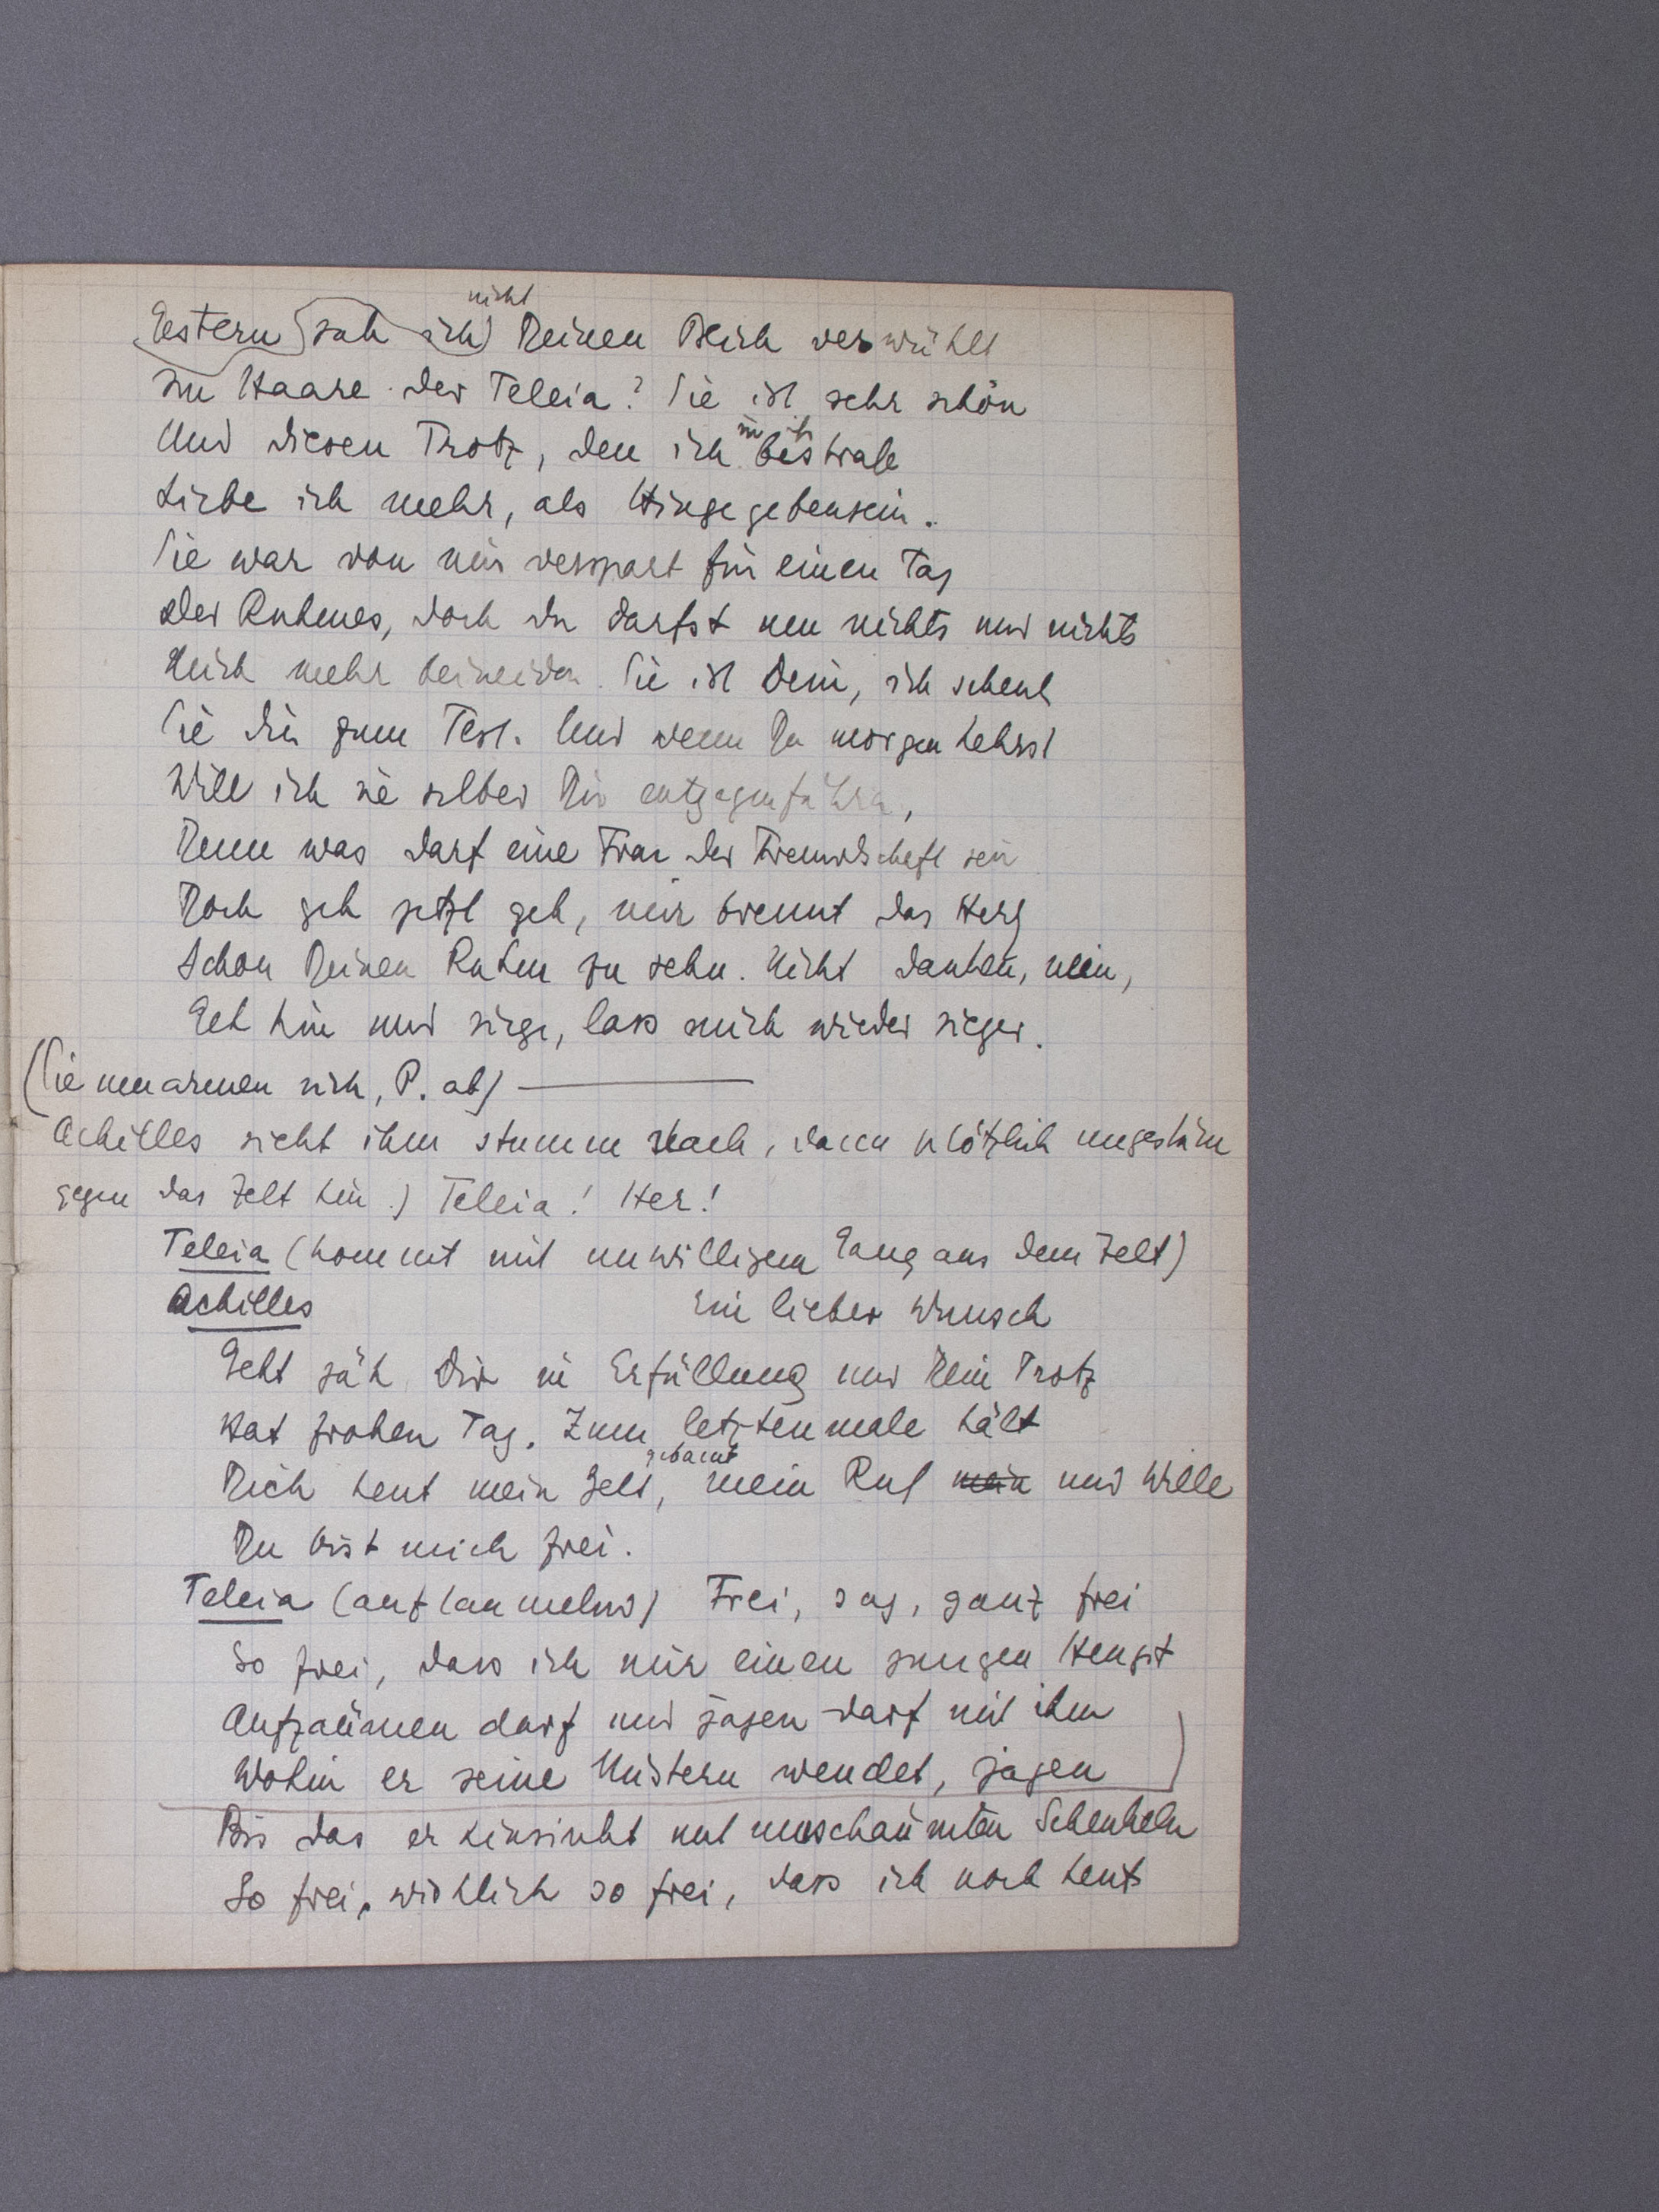 nicht
Gestern sah ich Deinen Blick verwühlt
Im Haare der Teleia? Sie ist sehr schön
in ihr
Und diesen Trotz, den ich bestrafe
Liebe ich mehr, als Hingegebensein.
Sie war von mir verspart für einen Tag
Des Ruhmes, doch du darfst nun nichts und nichts
Mich mehr beineiden. Sie ist Dein, ich schenk
Sie dir zum Fest. Und wenn Du morgen kehrst
Will ich sie selber Dir entgegenführen,
Denn was darf eine Frau der Freundschaft sein
Doch geh jetzt geh, mir brennt das Herz
Schon Deinen Ruhm zu sehn. Nicht danken, nein,
Geh hin und siege, lass mich wieder siegen.
(Sie umarmen sich, P. ab)
Achilles sieht ihm stumm nach, dann plötzlich ungestüm
gegen das Zelt hin.) Teleia! Her!
Teleia (kommt mit unwilligem Gang aus dem Zelt)
Achilles Ein lieber Wunsch
Geht jäh Dir in Erfüllung und Dein Trotz
Hat frohen Tag. Zum letztenmale hält
gebannt
Dich heut mein Zelt, mein Ruf mein und Wille
Du bist mich frei.
Teleia (auftaumelnd) Frei, sag, ganz frei
So frei, dass ich mir einen jungen Hengst
Aufzäumen darf und jagen darf mit ihm
Wohin er seine Nüstern wendet, jagen
Bis das er hinsinkt mit umschäumten Schenkeln
So frei, wirklich so frei, dass ich noch heut